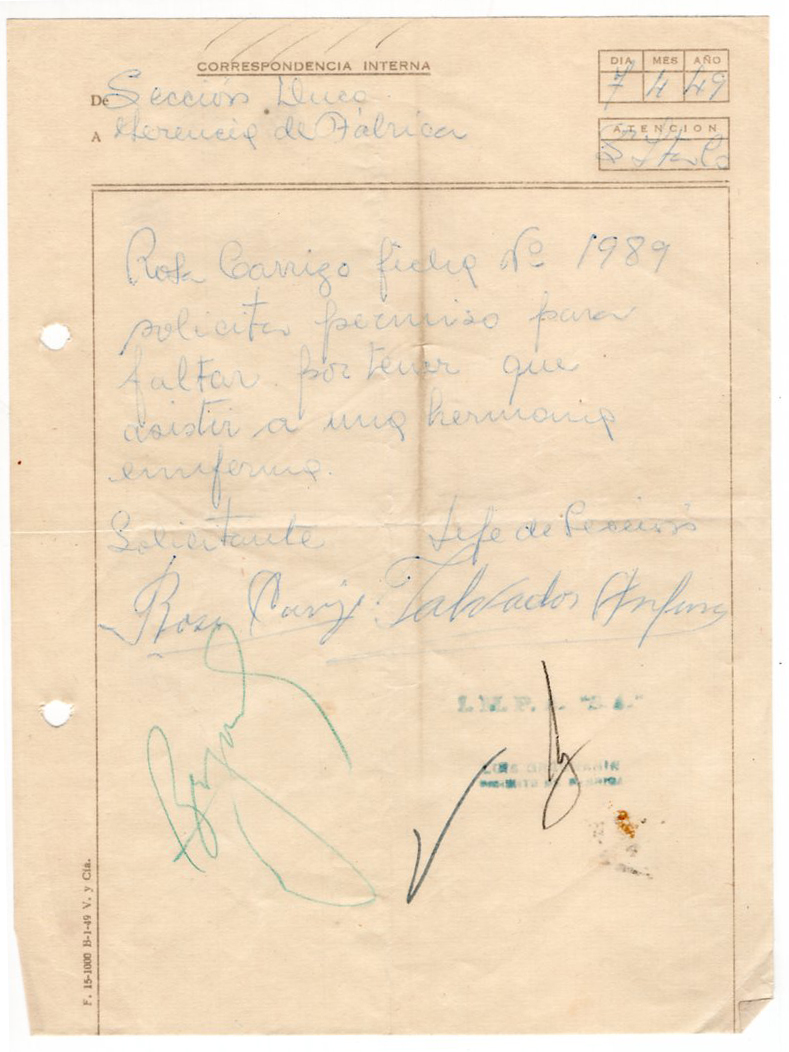 CORRESPONDENCIA INTERNA
DIA MES AÑO
7 4 49
De Sección
A Gerencia de Fábrica
ATENCION
Rosa Carrizo ficha Nº 1989
solicita permiso para
faltar por tener que
asistir a una hermana
emferma.
Solicitante Jefe de Sección
Rosa
I.M.P.A. "S.A."
F. 15-1000 B-1-49 V. y Cía.